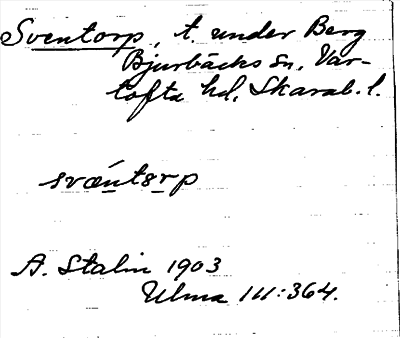 Sventorp, t. under Berg
Bjurbäcks sn, Var-
tofta hd, Skarab. l.
svǽntsrp
A. Stalin 1903
Ulma 111:364.